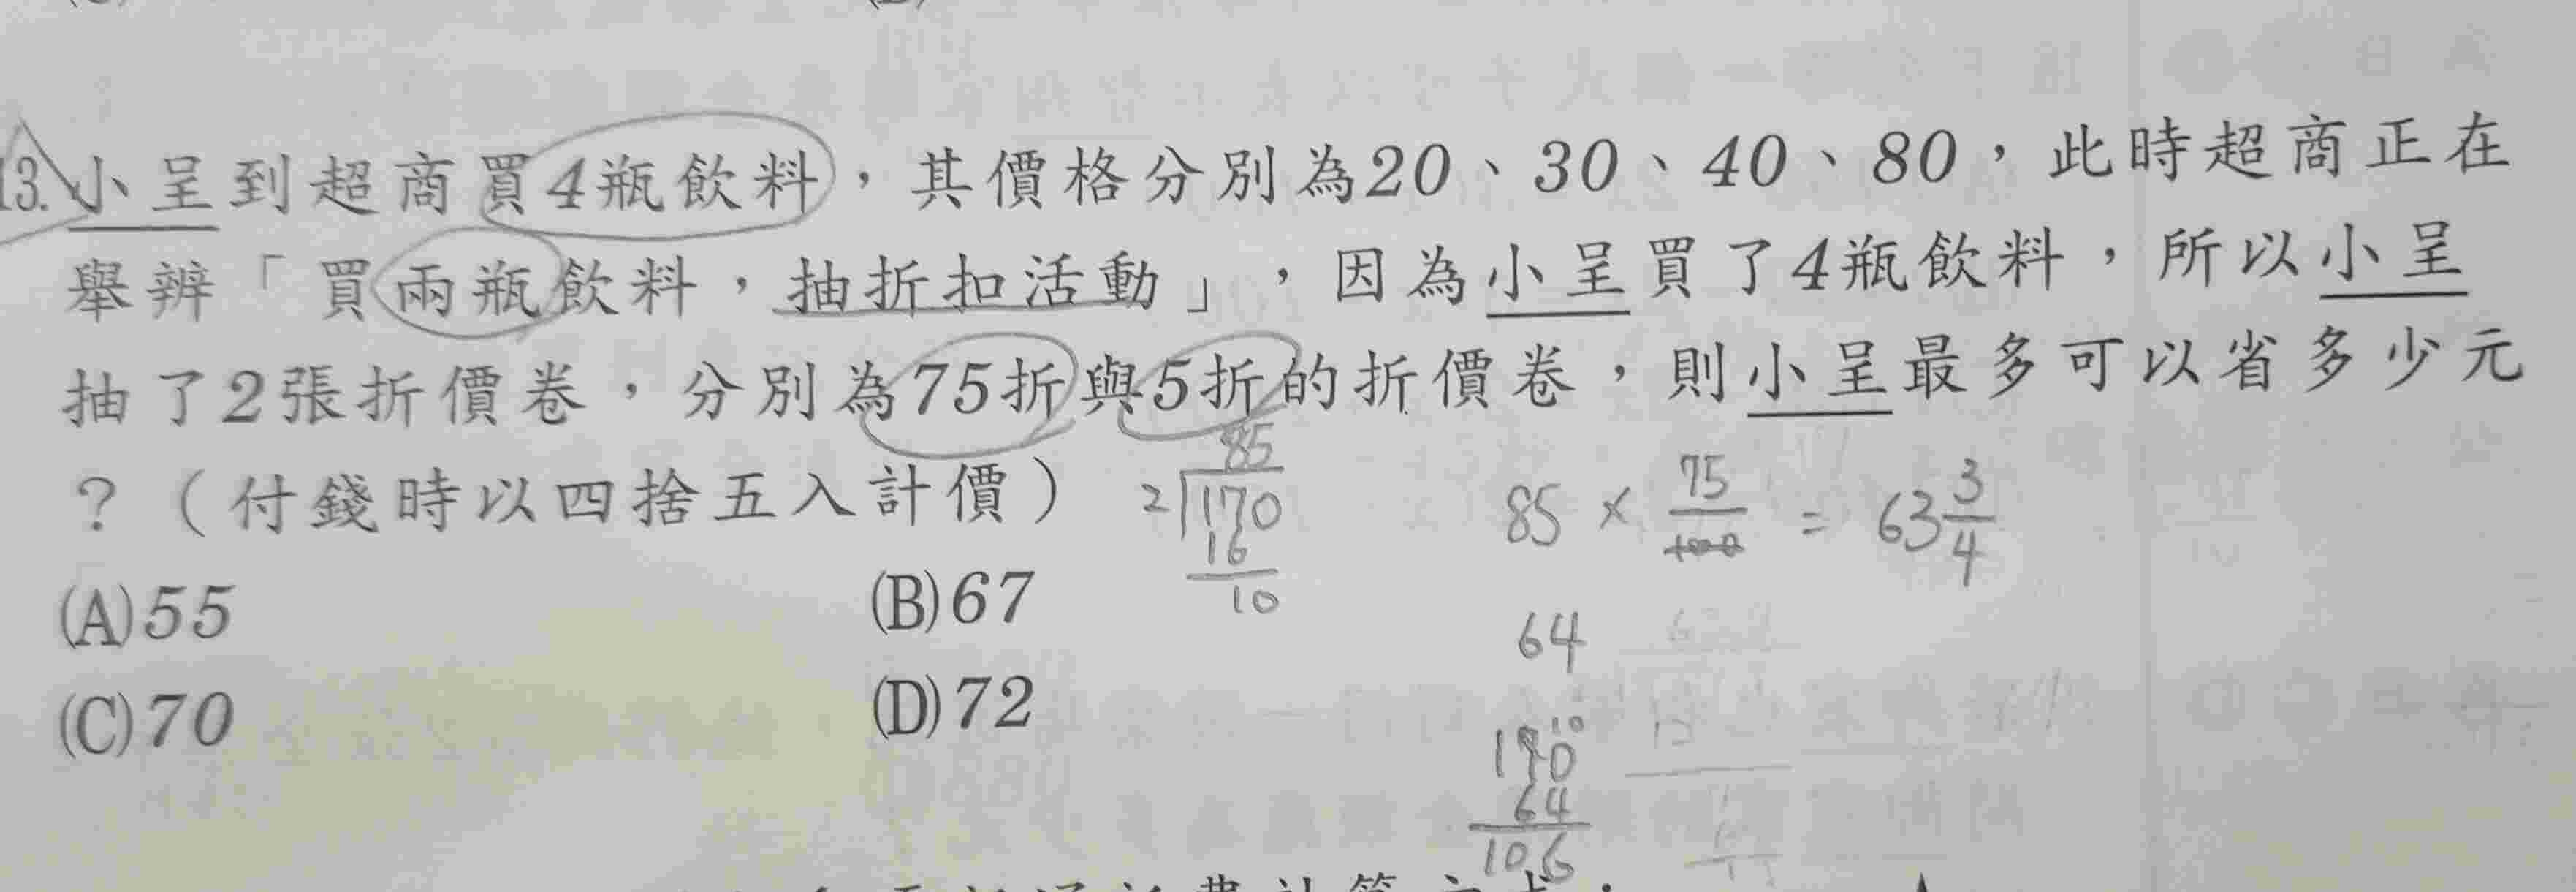 13. 小呈到超商買4瓶飲料，其價格分別為20、30、40、80，此時超商正在
舉辦「買兩瓶飲料，抽折扣活動」，因為小呈買了4瓶飲料，所以小呈
抽了2張折價卷，分別為75折與5折的折價卷，則小呈最多可以省多少元
？（付錢時以四捨五入計價）
85
2 170
16
10
85 × 75/100 = 63 3/4
64
10
170
64
106
(A)55 (B)67
(C)70 (D)72